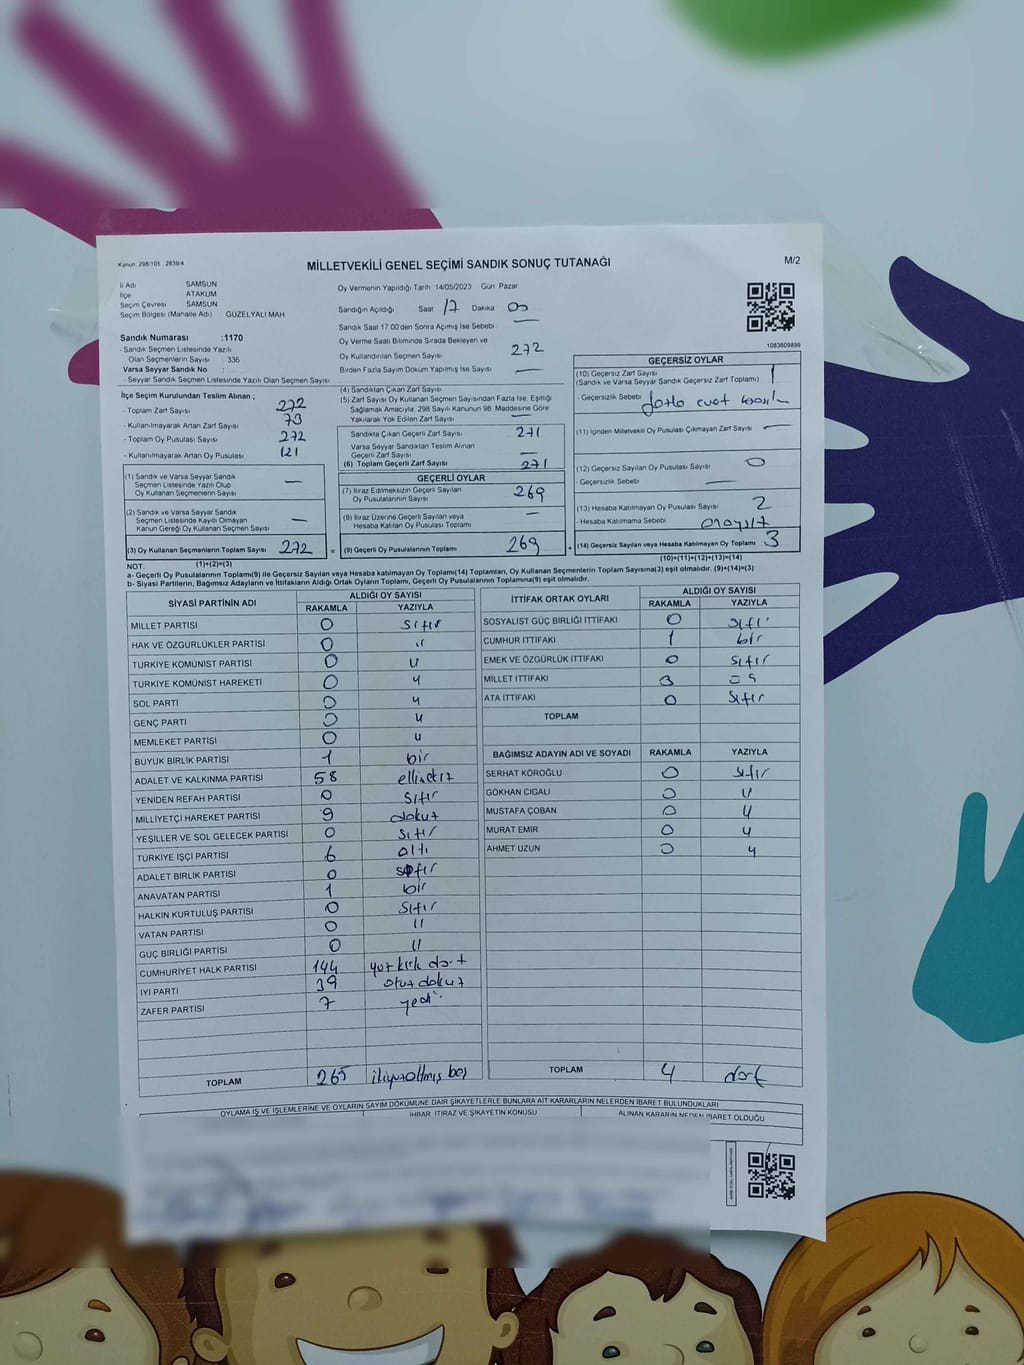 Kanun: 298/105 : 2839/4
MİLLETVEKİLİ GENEL SEÇİMİ SANDIK SONUÇ TUTANAĞI
M/2
İl Adı SAMSUN
İlçe ATAKUM
Seçim Çevresi SAMSUN
Seçim Bölgesi (Mahalle Adı) GÜZELYALI MAH
Sandık Numarası :1170
- Sandık Seçmen Listesinde Yazılı
Olan Seçmenlerin Sayısı : 336
Varsa Seyyar Sandık No :
- Seyyar Sandık Seçmen Listesinde Yazılı Olan Seçmen Sayısı
Oy Vermenin Yapıldığı Tarih :14/05/2023 Gün Pazar
Sandığın Açıldığı Saat 17 Dakika 00
Sandık Saat 17.00'den Sonra Açmış İse Sebebi —
Oy Verme Saati Bitiminde Sırada Bekleyen ve
Oy Kullandırılan Seçmen Sayısı 272
Birden Fazla Sayım Döküm Yapılmış İse Sayısı —
1083609899
İlçe Seçim Kurulundan Teslim Alınan ;
- Toplam Zarf Sayısı 272
- Kullanılmayarak Artan Zarf Sayısı 73
- Toplam Oy Pusulası Sayısı 272
- Kullanılmayarak Artan Oy Pusulası 121
(1) Sandık ve Varsa Seyyar Sandık
Seçmen Listesinde Yazılı Olup
Oy Kullanan Seçmenlerin Sayısı —
(2) Sandık ve Varsa Seyyar Sandık
Seçmen Listesinde Kayıtlı Olmayan
Kanun Gereği Oy Kullanan Seçmenler —
(3) Oy Kullanan Seçmenlerin Toplam Sayısı 272
(1)+(2)=(3)
(4) Sandıktan Çıkan Zarf Sayısı
(5) Zarf Sayısı Oy Kullanan Seçmen Sayısından Fazla İse, Eşitliği
Sağlamak Amacıyla, 298 Sayılı Kanunun 98. Maddesine Göre
Yakılarak Yok Edilen Zarf Sayısı —
Sandıkta Çıkan Geçerli Zarf Sayısı 271
Varsa Seyyar Sandıktan Teslim Alınan
Geçerli Zarf Sayısı —
(6) Toplam Geçerli Zarf Sayısı 271
GEÇERLİ OYLAR
(7) İtiraz Edilmeksizin Geçerli Sayılan
Oy Pusulalarının Sayısı 269
(8) İtiraz Üzerine Geçerli Sayılan veya
Hesaba Katılan Oy Pusulası Toplamı —
= (9) Geçerli Oy Pusulalarının Toplamı 269
GEÇERSİZ OYLAR
(10) Geçersiz Zarf Sayısı 1
(Sandık ve Varsa Seyyar Sandık Geçersiz Zarf Toplamı)
- Geçersizlik Sebebi evet
(11) İçinden Milletvekili Oy Pusulası Çıkmayan Zarf Sayısı —
(12) Geçersiz Sayılan Oy Pusulası Sayısı 0
- Geçersizlik Sebebi —
(13) Hesaba Katılmayan Oy Pusulası Sayısı 2
- Hesaba Katılmama Sebebi
+ (14) Geçersiz Sayılan veya Hesaba Katılmayan Oy Toplamı 3
(10)+(11)+(12)+(13)=(14)
NOT:
a- Geçerli Oy Pusulalarının Toplamı(9) ile Geçersiz Sayılan veya Hesaba Katılmayan Oy Toplamı(14) Toplamları, Oy Kullanan Seçmenlerin Toplam Sayısına(3) eşit olmalıdır. (9)+(14)=(3)
b- Siyasi Partilerin, Bağımsız Adayların ve İttifakların Aldığı Ortak Oyların Toplamı, Geçerli Oy Pusulalarının Toplamına(9) eşit olmalıdır.
SİYASİ PARTİNİN ADI ALDIĞI OY SAYISI
RAKAMLA YAZIYLA
MİLLET PARTİSİ 0 sıfır
HAK VE ÖZGÜRLÜKLER PARTİSİ 0 "
TÜRKİYE KOMÜNİST PARTİSİ 0 "
TÜRKİYE KOMÜNİST HAREKETİ 0 "
SOL PARTİ 0 "
GENÇ PARTİ 0 "
MEMLEKET PARTİSİ 0 "
BÜYÜK BİRLİK PARTİSİ 1 bir
ADALET VE KALKINMA PARTİSİ 58 ellisekiz
YENİDEN REFAH PARTİSİ 0 sıfır
MİLLİYETÇİ HAREKET PARTİSİ 9 dokuz
YEŞİLLER VE SOL GELECEK PARTİSİ 0 sıfır
TÜRKİYE İŞÇİ PARTİSİ 6 altı
ADALET BİRLİK PARTİSİ 0 sıfır
ANAVATAN PARTİSİ 1 bir
HALKIN KURTULUŞ PARTİSİ 0 sıfır
VATAN PARTİSİ 0 "
GÜÇ BİRLİĞİ PARTİSİ 0 "
CUMHURİYET HALK PARTİSİ 144 yüz kırk dört
İYİ PARTİ 39 otuz dokuz
ZAFER PARTİSİ 7 yedi
TOPLAM 265 ikiyüzaltmış beş
İTTİFAK ORTAK OYLARI ALDIĞI OY SAYISI
RAKAMLA YAZIYLA
SOSYALİST GÜÇ BİRLİĞİ İTTİFAKI 0 sıfır
CUMHUR İTTİFAKI 1 bir
EMEK VE ÖZGÜRLÜK İTTİFAKI 0 sıfır
MİLLET İTTİFAKI 3 üç
ATA İTTİFAKI 0 sıfır
TOPLAM
BAĞIMSIZ ADAYIN ADI VE SOYADI RAKAMLA YAZIYLA
SERHAT KÖROĞLU 0 sıfır
GÖKHAN CIGALI 0 "
MUSTAFA ÇOBAN 0 "
MURAT EMİR 0 "
AHMET UZUN 0 "
TOPLAM 4 dört
OYLAMA İŞ VE İŞLEMLERİNE VE OYLARIN SAYIM DÖKÜMÜNE DAİR ŞİKAYETLERLE BUNLARA AİT KARARLARIN NELERDEN İBARET BULUNDUKLARI
İHBAR, İTİRAZ VE ŞİKAYETİN KONUSU
ALINAN KARARIN NEDEN İBARET OLDUĞU